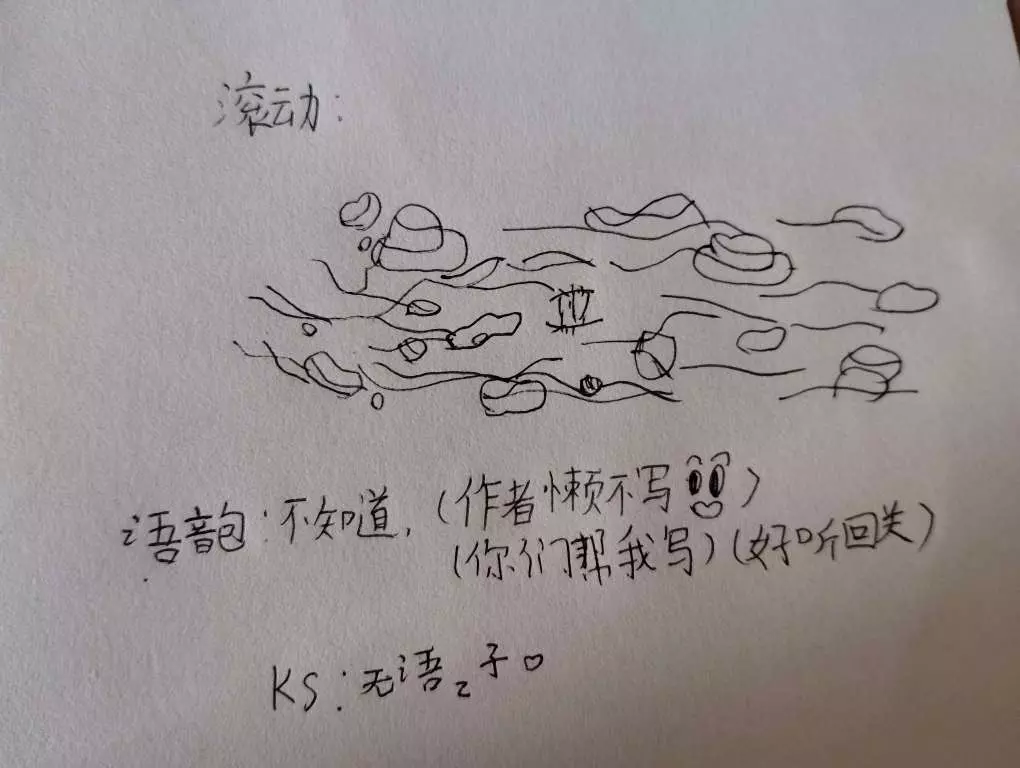 滚动:
语音包:不知道,(作者懒不写)
(你们帮我写)(好听回关)
KS:无语z子